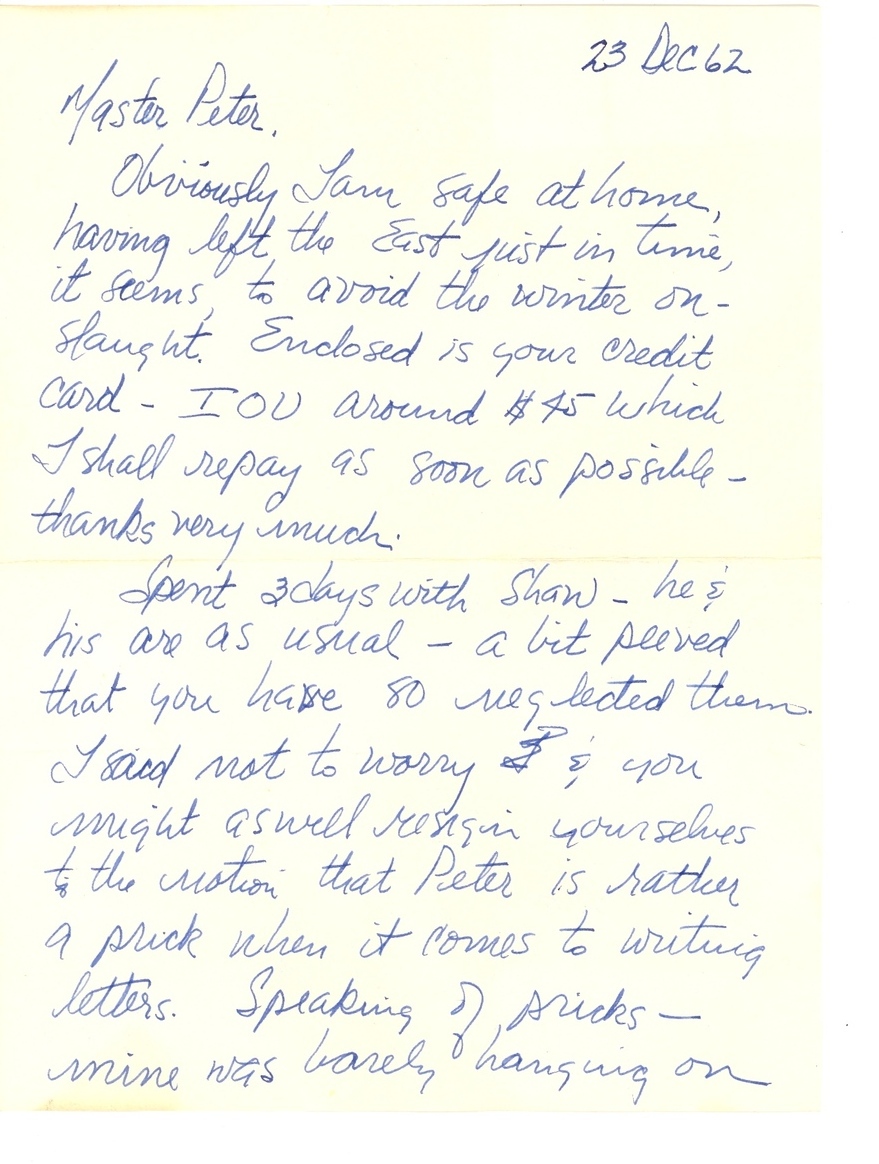 23 Dec 62
Master Peter,
Obviously I am safe at home,
having left the East just in time,
it seems, to avoid the winter on-
slaught. Enclosed is your credit
card - I O U around $45 which
I shall repay as soon as possible -
thanks very much.
Spent 3 days with Shaw - he &
his are as usual - a bit peeved
that you have so neglected them.
I said not to worry & you
might as well resign yourselves
to the notion that Peter is rather
a prick when it comes to writing
letters. Speaking of pricks -
mine was barely hanging on